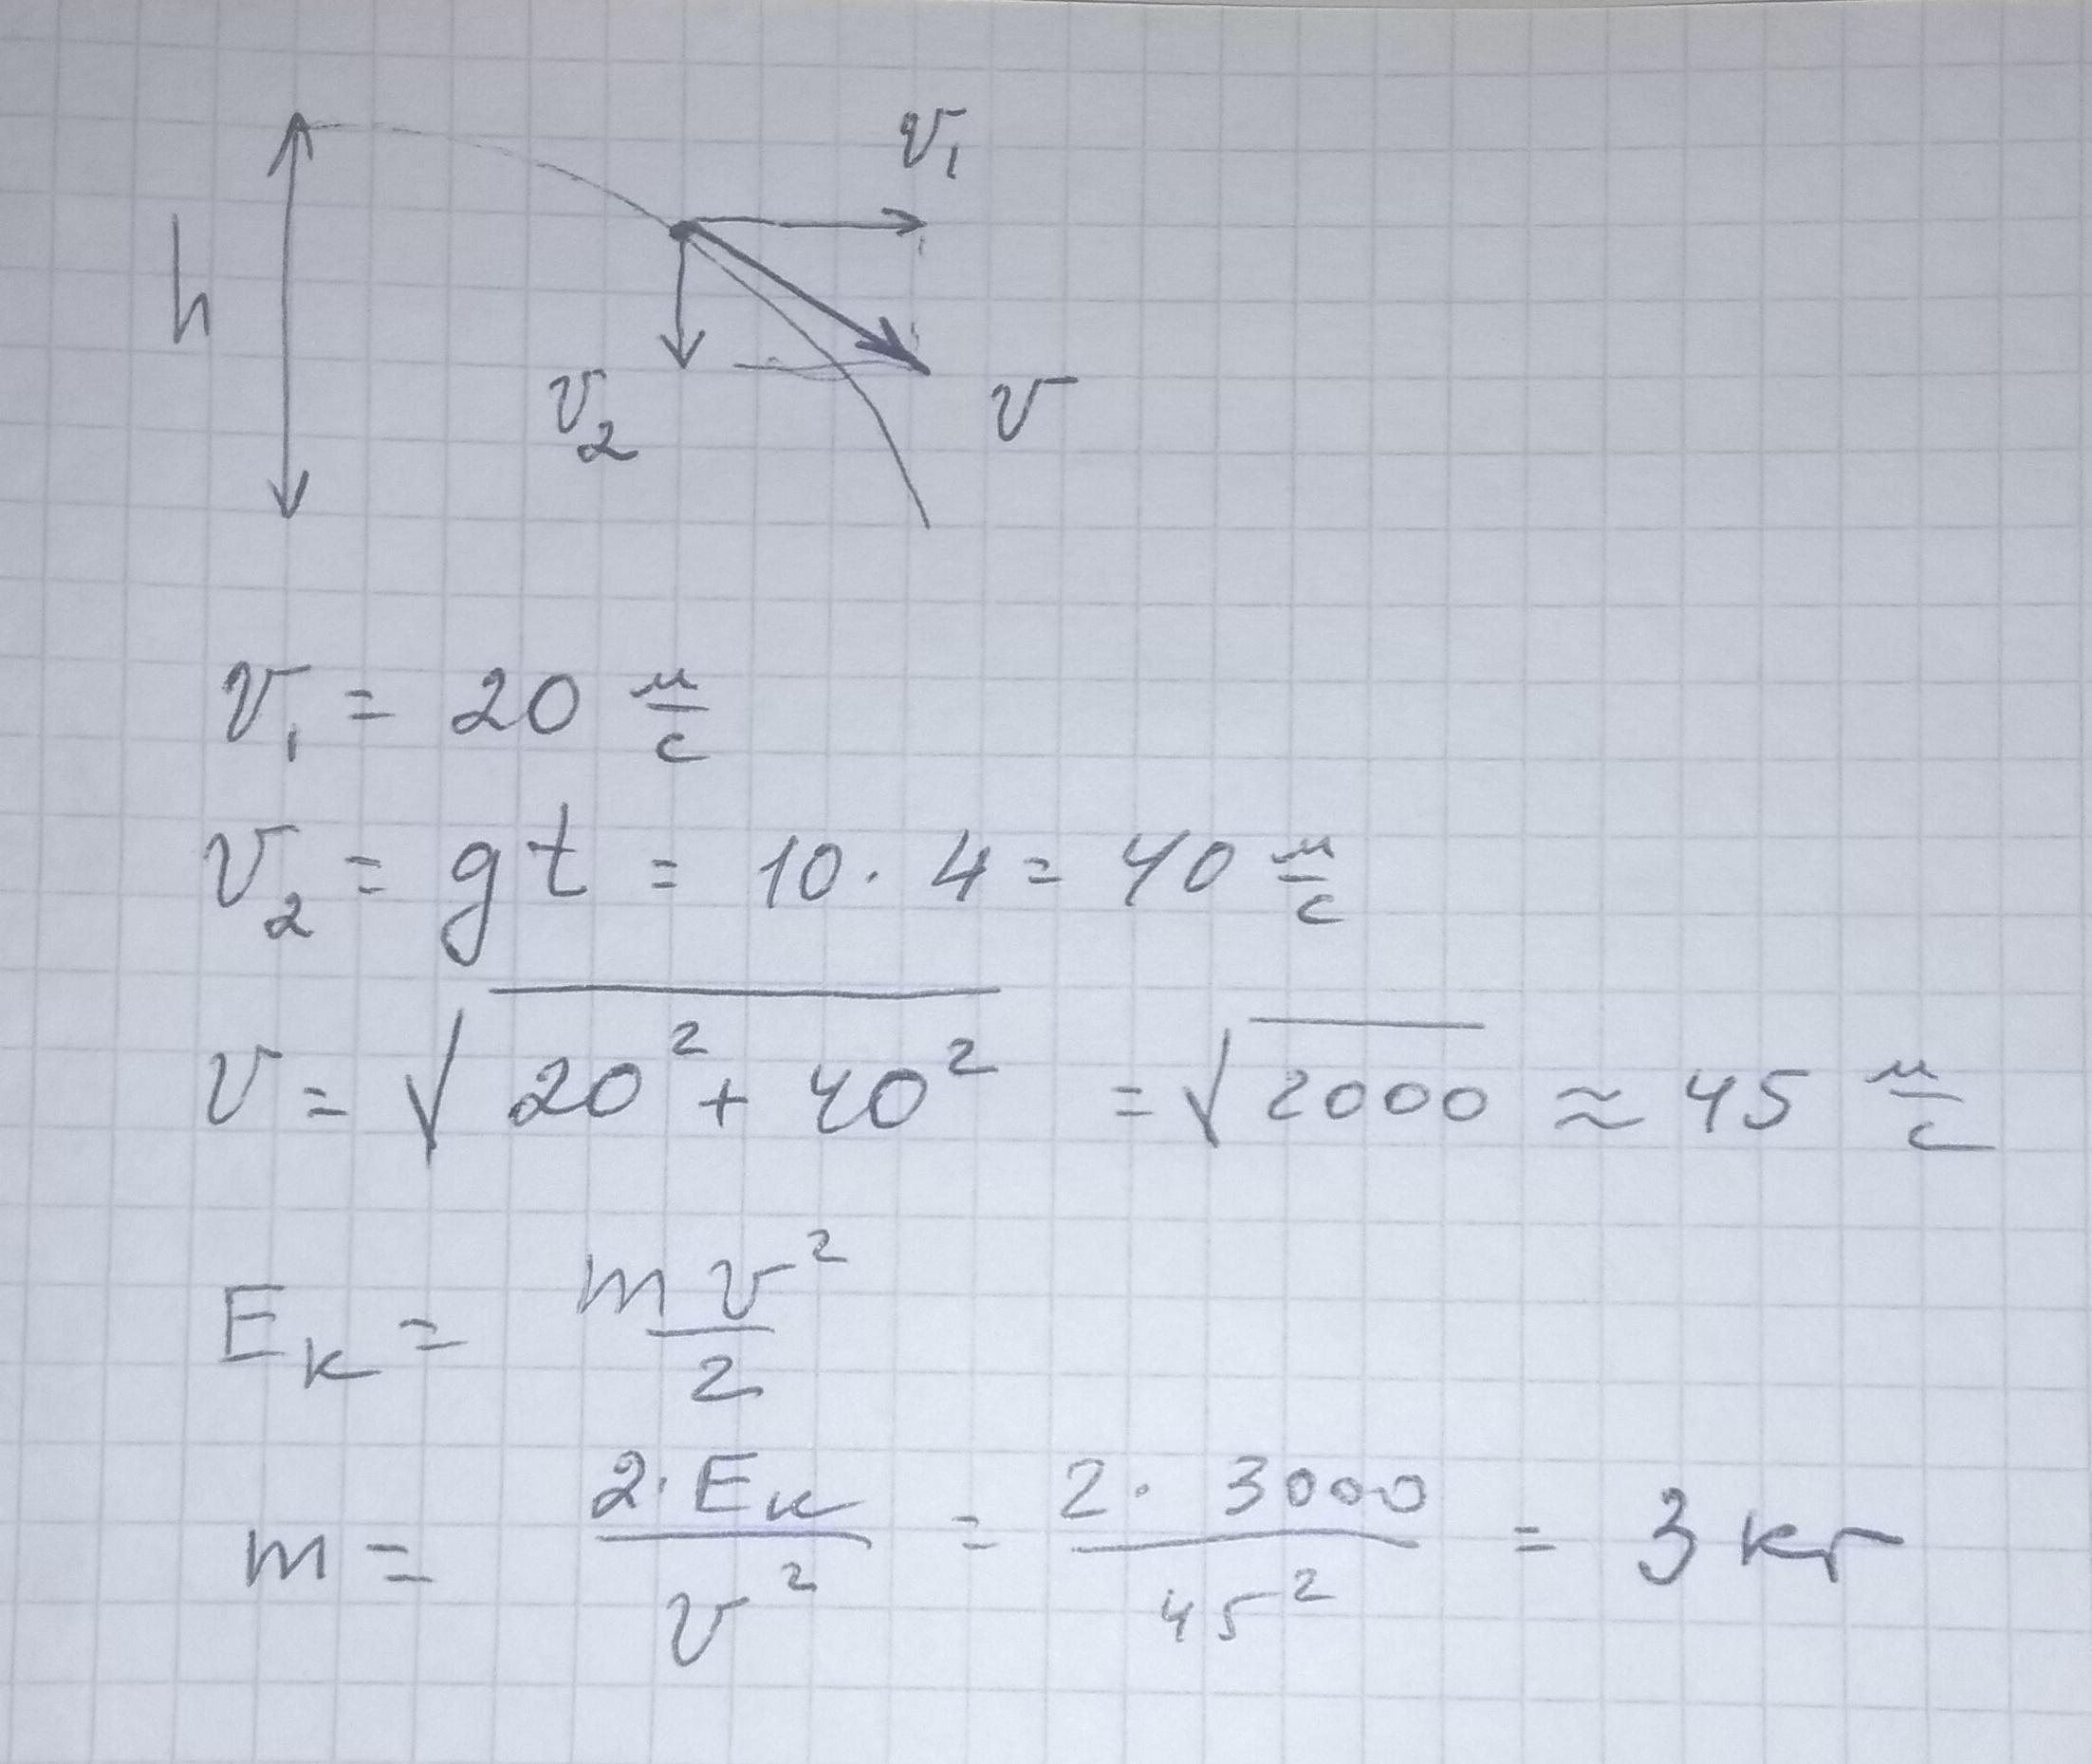 v₁
h
v₂
v
v₁ = 20 м/с
v₂ = gt = 10 · 4 = 40 м/с
v = √(20² + 40²) = √2000 ≈ 45 м/с
Eк = mv²/2
m = 2·Eк/v² = 2·3000/45² = 3 кг